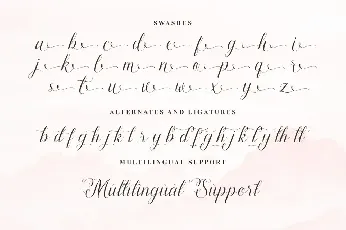 SWASHES
a b c d e f g h i
j k l m n o p q r
s t u v w x y z
ALTERNATES AND LIGATURES
b d f g h j k l r y b d f g h j k l y th ll
MULTILINGUAL SUPPORT
Multilingual Support